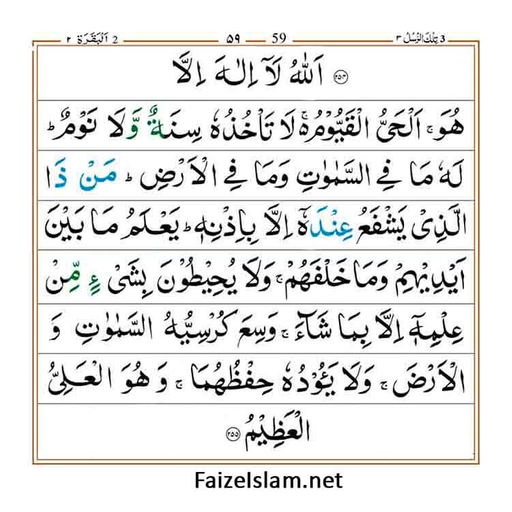 3 تِلْكَ الرُّسُلُ ٣ 59 ۵۹ 2 اَلْبَقَرَة ٢
۝۲۵۴ اَللّٰهُ لَاۤ اِلٰهَ اِلَّا
هُوَۚ اَلْحَیُّ الْقَیُّوْمُ۬ۚ لَا تَاْخُذُهٗ سِنَةٌ وَّلَا نَوْمٌؕ
لَهٗ مَا فِی السَّمٰوٰتِ وَمَا فِی الْاَرْضِؕ مَنْ ذَا
الَّذِیْ یَشْفَعُ عِنْدَهٗۤ اِلَّا بِاِذْنِهٖؕ یَعْلَمُ مَا بَیْنَ
اَیْدِیْهِمْ وَمَا خَلْفَهُمْۚ وَلَا یُحِیْطُوْنَ بِشَیْءٍ مِّنْ
عِلْمِهٖۤ اِلَّا بِمَا شَآءَۚ وَسِعَ كُرْسِیُّهُ السَّمٰوٰتِ وَ
الْاَرْضَۚ وَلَا یَـُٔوْدُهٗ حِفْظُهُمَاۚ وَهُوَ الْعَلِیُّ
الْعَظِیْمُ ۝۲۵۵
FaizeIslam.net